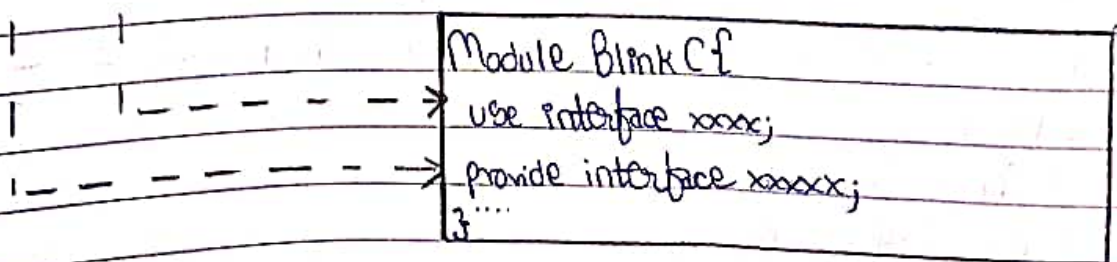 Module BlinkC{
use interface xxxx;
provide interface xxxxx;
}....